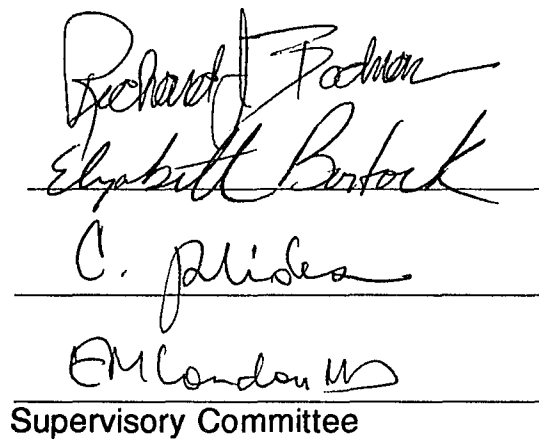 Richard J Bodnar
Elizabeth Bostock
C.
EM London MD
Supervisory Committee